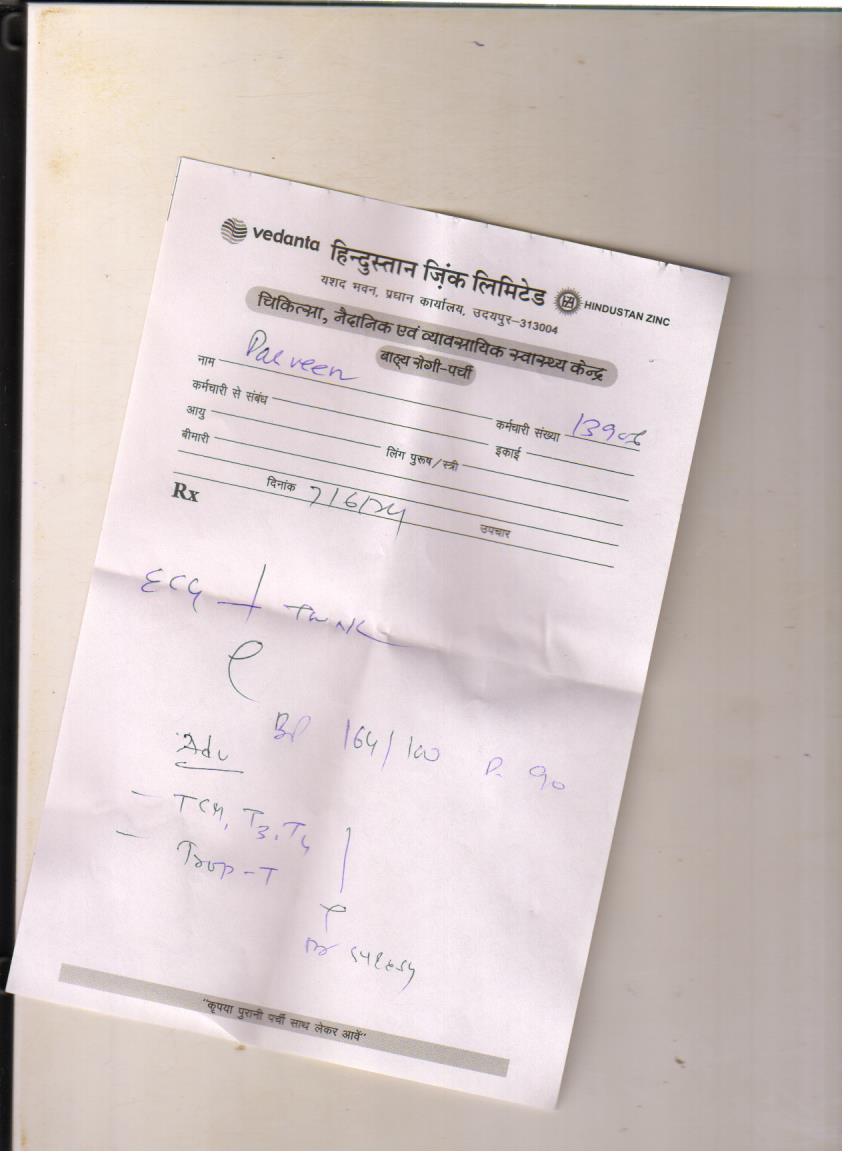 vedanta हिन्दुस्तान ज़िंक लिमिटेड HINDUSTAN ZINC
यशद भवन, प्रधान कार्यालय, उदयपुर–313004
चिकित्सा, नैदानिक एवं व्यावसायिक स्वास्थ्य केन्द्र
बाह्य रोगी-पर्ची
नाम Parveen कर्मचारी संख्या 13906
कर्मचारी से संबंध इकाई
आयु लिंग पुरूष/स्त्री
बीमारी
दिनांक 7/6/24 उपचार
Rx
ECG
BP 164/100 P- 90
Adv
- TSH, T3, T4
- Trop-T
"कृपया पुरानी पर्ची साथ लेकर आवें"